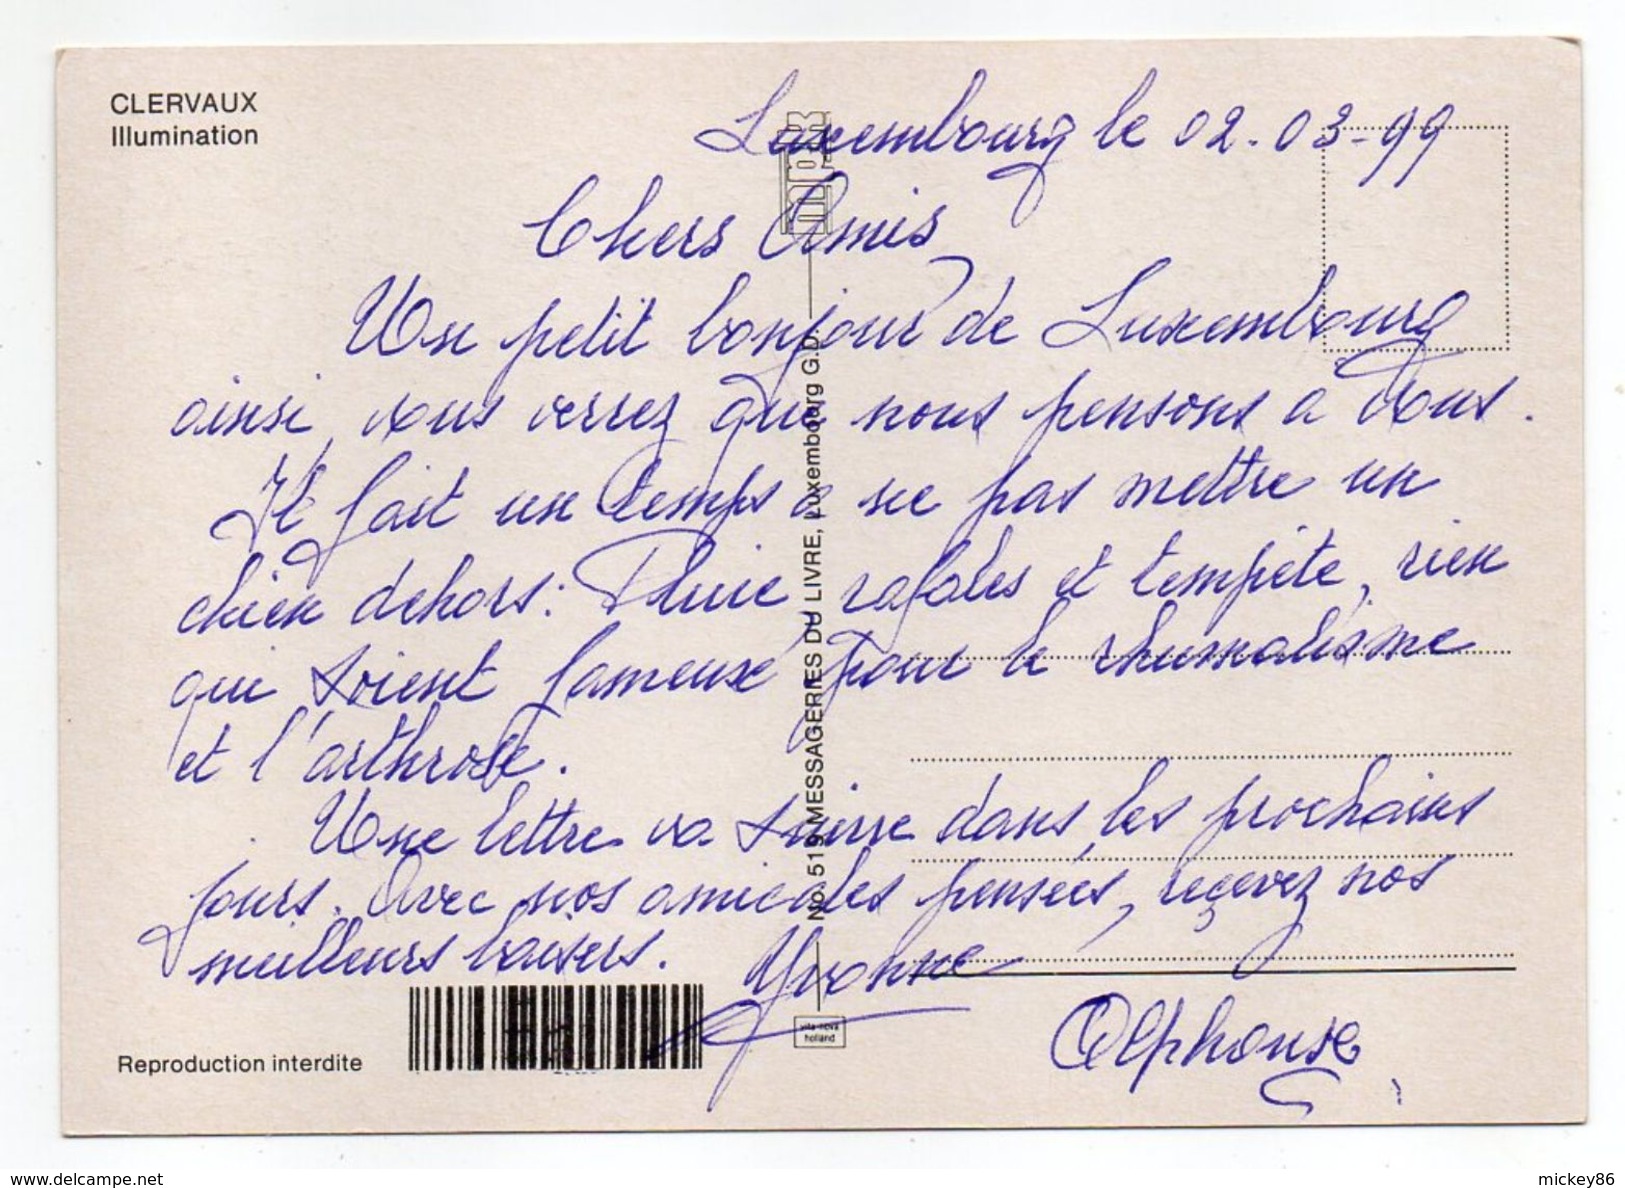 CLERVAUX
Illumination
Luxembourg le 02-03-99
Chers Amis,
Un petit bonjour de Luxembourg
ainsi vous verrez que nous pensons a vous.
Il fait un temps a ne pas mettre un
chien dehors: Pluie, rafales et tempête, rien
qui soient fameux pour le rhumatisme
et l'arthrose.
Une lettre va suivre dans les prochains
jours. Avec nos amicales pensées, reçevez nos
meilleurs baisers. Yvonne
Alphonse
mpk
No. 519 MESSAGERIES DU LIVRE, Luxembourg G.D.
vita nova
holland
Reproduction interdite
mickey86